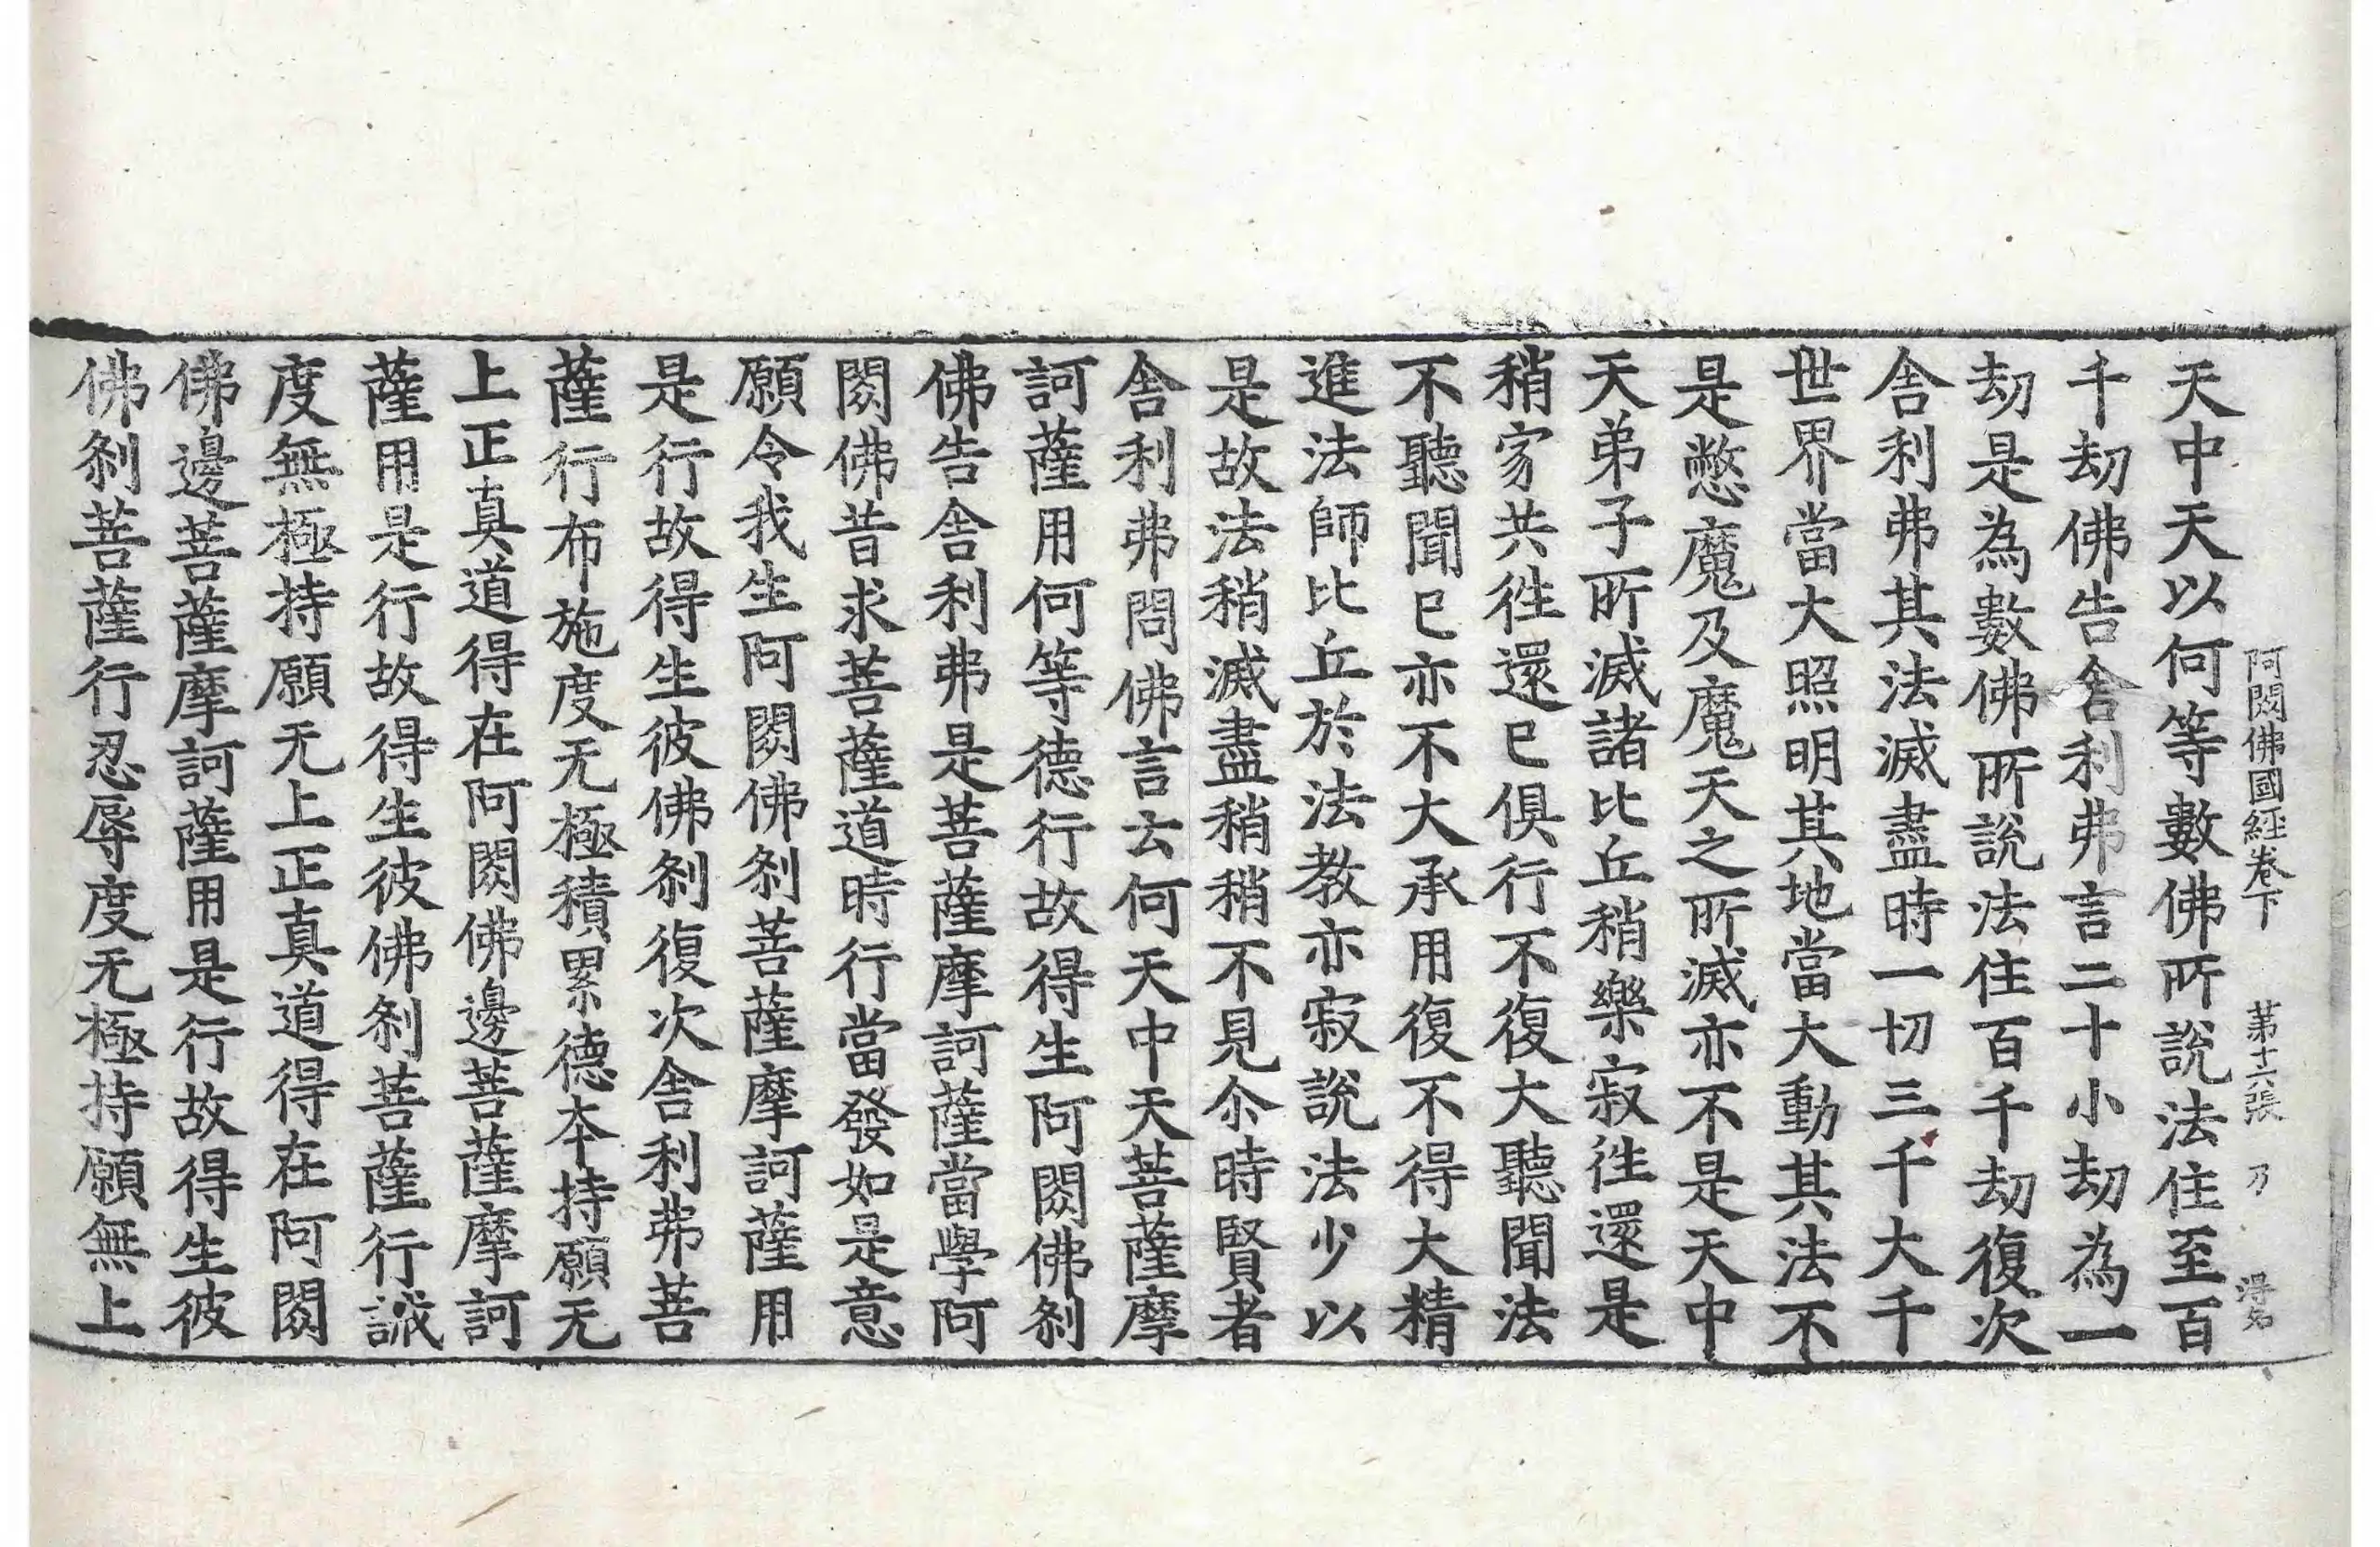 阿閦佛國經卷下 第十六張 乃
天中天以何等數佛所說法住至百
千劫佛告舎利弗言二十小劫為一
劫是為數佛所說法住百千劫復次
舎利弗其法滅盡時一切三千大千
世界當大照明其地當大動其法不
是憋魔及魔天之所滅亦不是天中
天弟子所滅諸比丘稍樂寂徃還是
稍家共徃還已俱行不復大聽聞法
不聽聞已亦不大承用復不得大精
進法師比丘於法教亦寂說法少以
是故法稍滅盡稍稍不見尒時賢者
舎利弗問佛言云何天中天菩薩摩
訶薩用何等德行故得生阿閦佛刹
佛告舎利弗是菩薩摩訶薩當學阿
閦佛昔求菩薩道時行當發如是意
願令我生阿閦佛刹菩薩摩訶薩用
是行故得生彼佛刹復次舎利弗菩
薩行布施度无極積累德夲持願无
上正真道得在阿閦佛邊菩薩摩訶
薩用是行故得生彼佛刹菩薩行誡
度無極持願无上正真道得在阿閦
佛邊菩薩摩訶薩用是行故得生彼
佛刹菩薩行忍辱度无極持願無上